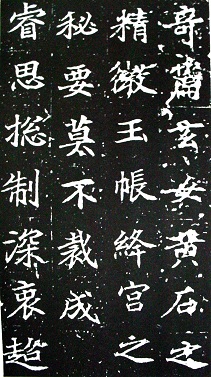 奇玄女黄石之
精微玉帳絳宮之
秘要莫不裁成
睿思揔制深衷超